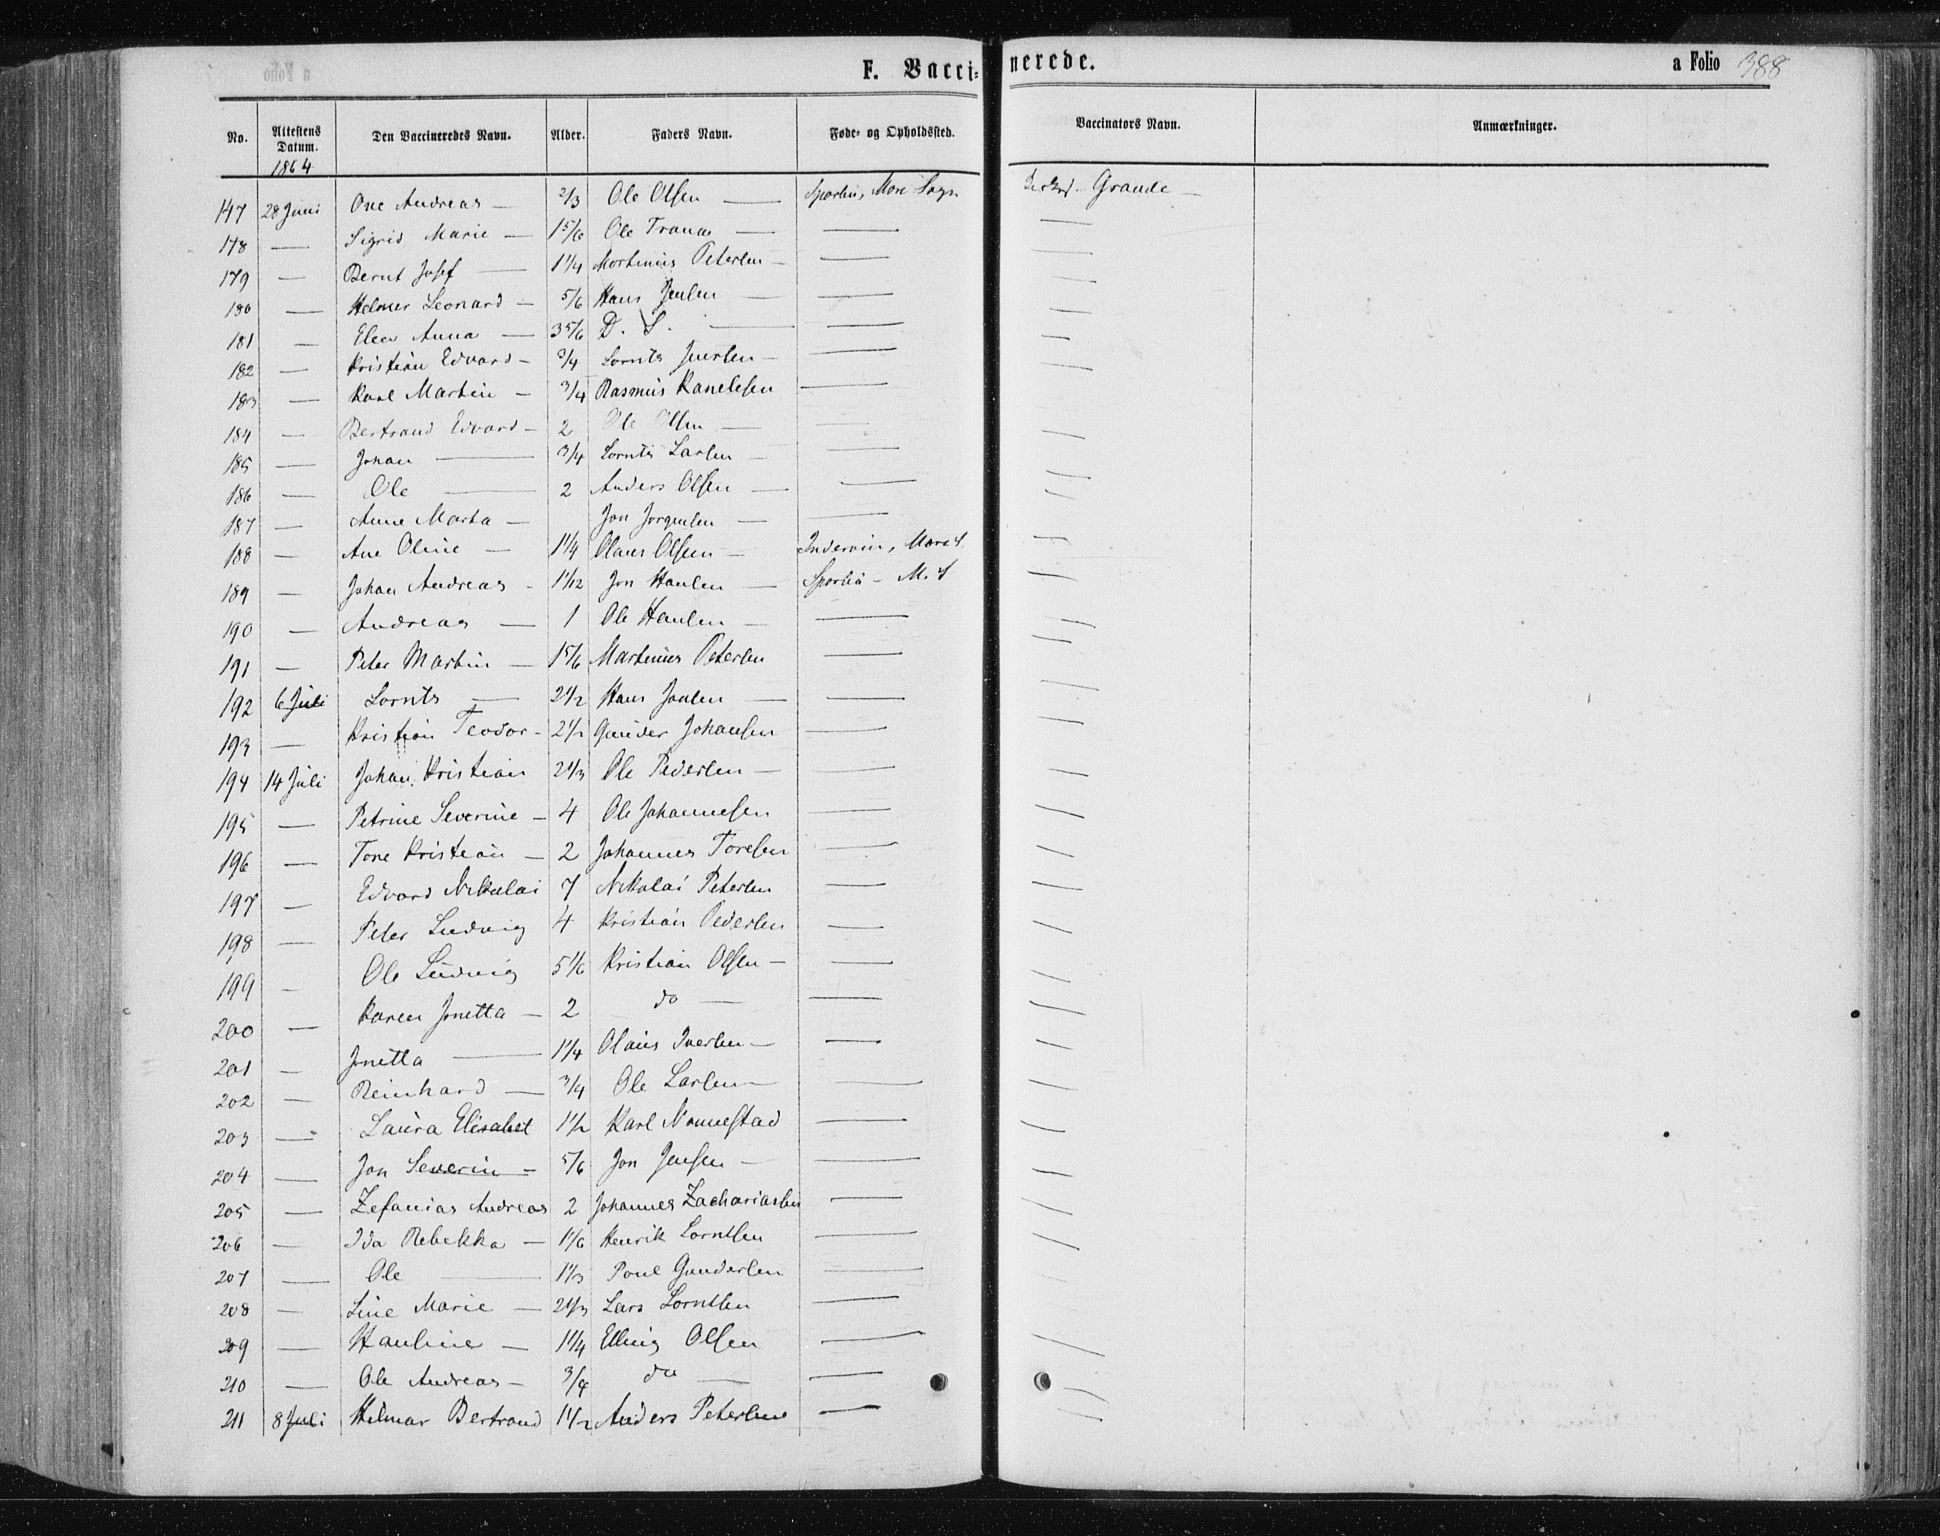 F. Vaccinerede.
a Folio 388
No. Attestens Datum. Den Vaccineredes Navn. Alder. Faders Navn. Føde- og Opholdssted. Vaccinators Navn. Anmærkninger.
1864
147 28 Juni One Andreas — 2/3 Ole Olsen — Sparbu, Mære Sogn Grande —
178 — Sigrid Marie — 1 5/6 Ole — —
179 — Bernt Josef — 1 1/4 Mortinus Petersen — —
180 — Helmer Leonard — 5/6 Hans Jensen — —
181 — Elen Anna — 3 5/6 D. S. — —
182 — Kristian Edvard — 3/4 Lornts Iversen — —
183 — Karl Martin — 3/4 Rasmus —
184 — Bertrand Edvard — 2 Ole Olsen — —
185 — Johan — 3/4 Lornts Larsen — —
186 — Ole — 2 Anders Olsen — —
187 — Anne Marta — Jon Jørgensen — —
188 — Ane Oline — 1 1/4 Olaus Olsen — Inderøen, Mære S.
189 — Johan Andreas — 1 1/12 Jon Hansen — Sparbu — M. S
190 — Andreas — 1 Ole Hansen — —
191 — Peter Martin — 1 5/6 Martinus Petersen —
192 6 Juli Lornts — 2 1/2 Hans — —
193 — Kristian Teodor — 2 1/2 Gunder Johansen —
194 14 Juli Johan Kristian 2 1/3 Ole Pedersen — —
195 — Petrine Severine — 4 Ole Johannesen —
196 — Tore Kristian — 2 Johannes Toresen —
197 — Edvard Nikolai 7 Nikolai Petersen —
198 — Peter Ludvig 4 Kristian Pedersen —
199 — Ole Ludvig 5 1/6 Kristian Olsen — —
200 — Karen Jonetta — 2 do — —
201 — Jonetta — 1 1/4 Olaus Iversen — —
202 — Reinhard — 3/4 Ole Larsen — —
203 — Laura Elisabet 1 1/2 Karl Nonnestad —
204 — Jon Severin — 5/6 Jon Jensen — —
205 — Zefanias Andreas 2 Johannes Zachariassen —
206 — Ida Rebekka — 1 1/6 Henrik Lorntsen —
207 — Ole — 1 1/3 Poul Gundersen —
208 — Line Marie — 2 1/3 Lars Lorntsen —
209 — Hauline — 1 1/4 Elling Olsen —
210 — Ole Andreas — 3/4 do — —
211 8 Juli Hilmar Bertrand 1 1/2 Anders Petersen —